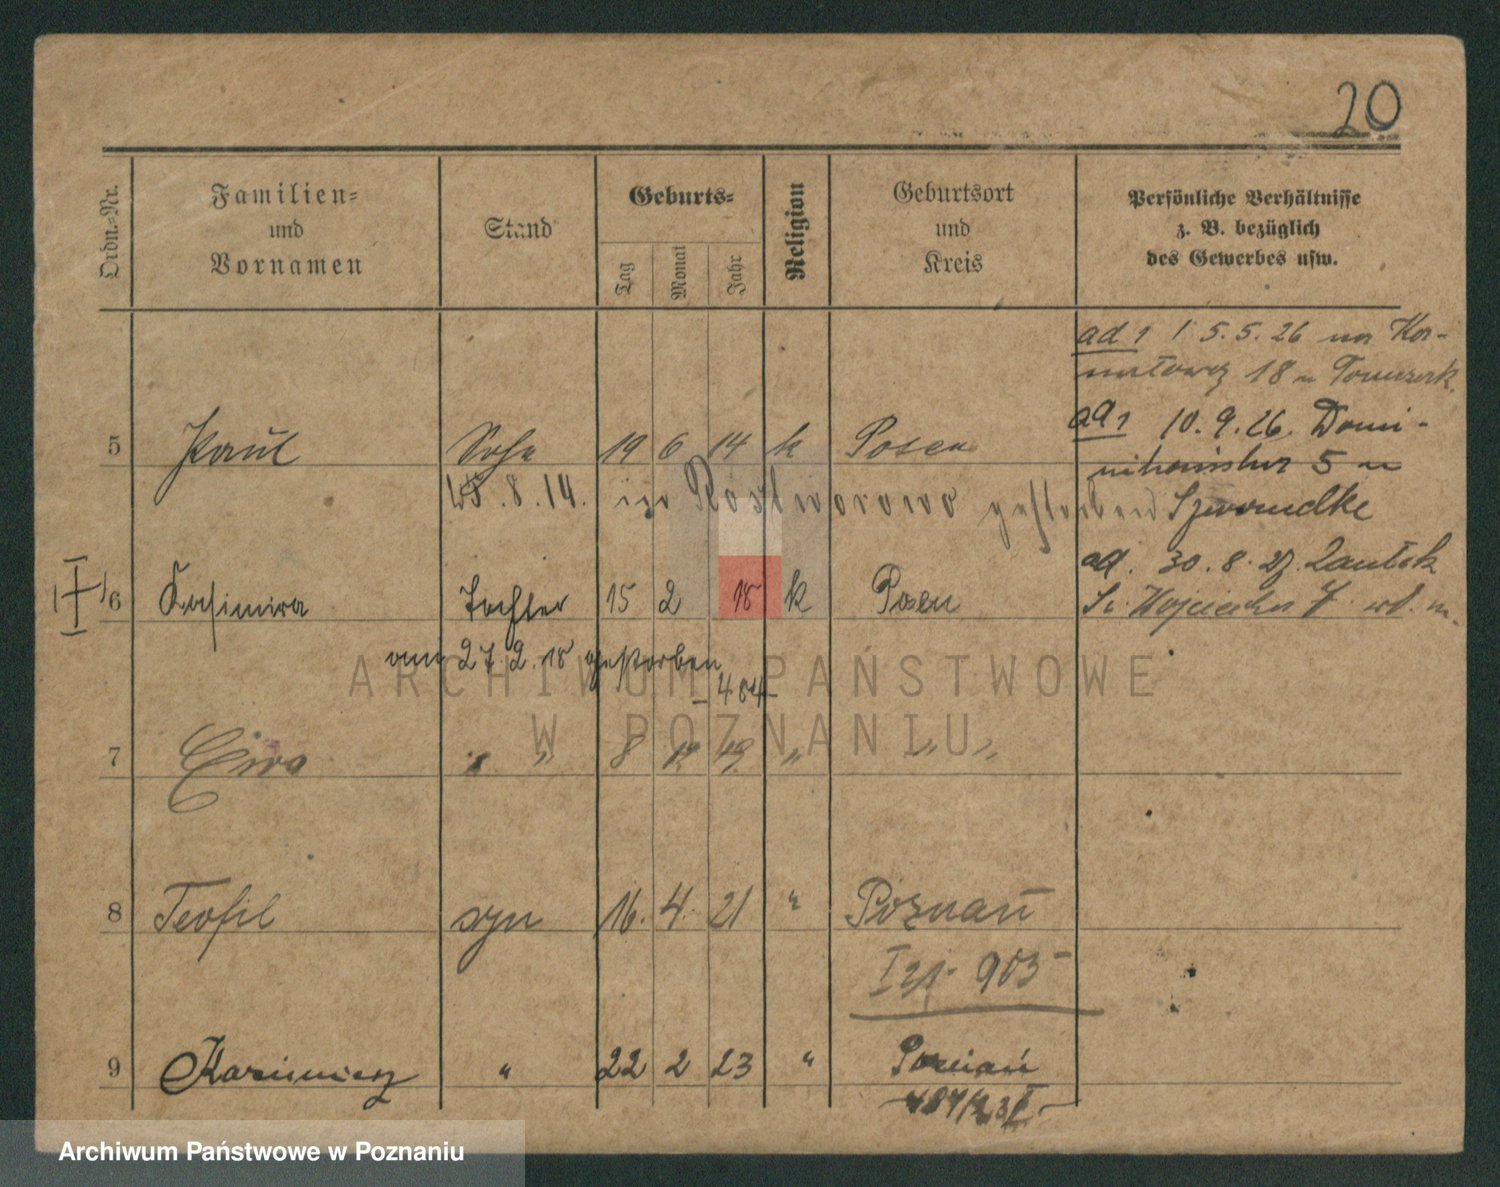 20
Ordn.=Nr.
Familien=
und
Vornamen
Stand
Geburts=
Tag
Monat
Jahr
Religion
Geburtsort
und
Kreis
Persönliche Verhältnisse
z. B. bezüglich
des Gewerbes usw.
ad 1 5.5.26
18
5 Paul Sohn 19 6 14 k Posen
ad 1 10.9.26. Domi-
5
.8.14. in Rostworowo gestorben
6 Kasimira Tochter 15 2 18 k Posen
ad. 30.8.27.
Św. Wojciecha 7
am 27.2.18 gestorben
7 Ewa " " 8 12 19 " " "
8 Teofil syn 16. 4. 21 " Poznań
903
9 Kazimierz " 22 2 23 " Poznań
ARCHIWUM PAŃSTWOWE
W POZNANIU
Archiwum Państwowe w Poznaniu